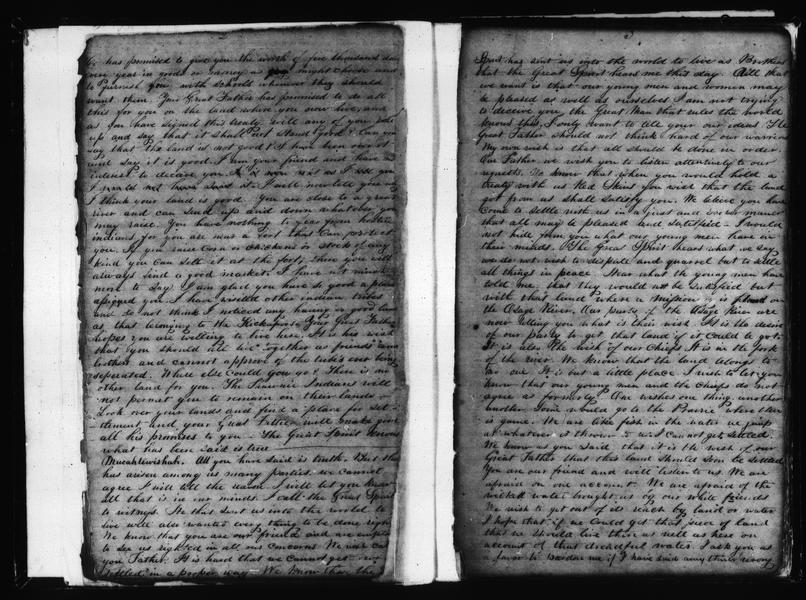 has promised to give you the worth of five thousand
year in goods or money as you might choose and
to furnish you with schools whenever they should
want them. Your Great Father has promised to do all
this for you on the land which you now have, and
as you have signed this treaty will any of you
up and say that it shall not stand good? Can you
say that the land is not good & I have been over it
and say it is good. I am your friend and have no
interest to deceive you.
I will now tell you
I think your land is good. You are close to a great
river and can send up and down whatever you
may raise. You have nothing to fear from hostile
indians for you are near a fort that can protect
you. If you raise Corn or chickens or stock of any
kind you can sell it at the fort, there you will
always find a good market. I have not much
more to say. I am glad you have so good a place
assigned you. I have visited other indian tribes
and do not think I noticed any having so good land
as that belonging to the Kickapoos. Your Great Father
hopes you are willing to live here. It is his wish
that you should all live together as friends and
brothers and cannot approve of the tribe's ever being
seperated. Where else could you go? There is no
other land for you. The Pawnee Indians will
not permit you to remain on their lands —
Look over your lands and find a place for set-
tlement and your Great Father will make good
all his promises to you — The Great Spirit knows
what has been said is true
All you have said is truth. But there
has arisen among us many parties. We cannot
agree I will tell the reason I will let you know
all that is in our minds. I call the Great Spirit
to witness. He that sent us into the world to
live will also wanted every thing to be done right
We know that you are our friend and are
to see us righted in all our concerns We wish
you Father. It is hard that we cannot get
settled in a proper way We know that the
3
Spirit has sent us into the world to live as Brothers
that the Great Spirit hears me this day. All that
we want is that our young men and women may
be pleased as well as ourselves. I am not trying
to deceive you, the Great Man that rules the world
knows this. I only want to tell you our ideas. The
Great Father should not think hard of our warriors
My own wish is that all should be done in order.
Our Father we wish you to listen attentively to our
requests. We know that when you would hold a
treaty with us Red Skins you wish that the land
got from us shall satisfy you. We believe you have
come to settle with us in a just and proper manner
that all may be pleased and satisfied — I would
not hide from you what our young men have in
their minds. The Great Spirit hears what we say,
we do not wish to dispute and quarrel but to settle
all things in peace. Hear what the young men have
told me, that they would not be satisfied but
with that land where a mission is placed on
the Osage River. Our party of the Osage River are
now telling you what is their wish. It is the desire
of our party to get that land if it could be got.
It is also the wish of our Chiefs. It is in the fork
of the river. We know that the land belongs to
no one. It is but a little place. I wish to let you
know that our young men and the chiefs do not
agree as formerly. One wishes one thing, another
another. Some would go to the Prairie where there
is game. We are like fish in the water we jump
at whatever is thrown to us & cannot get settled.
We know as you said, that it is the wish of our
Great Father that this land should soon be settled
You are our friend and will listen to us. We are
afraid on one account. We are afraid of the
wicked water brought us by our white friends
We wish to get out of its reach by land or water
I hope that if we could get that piece of land
that we should live there as well as here on
account of that dreadful water. I ask you as
a favor to pardon me if I have said anything wrong